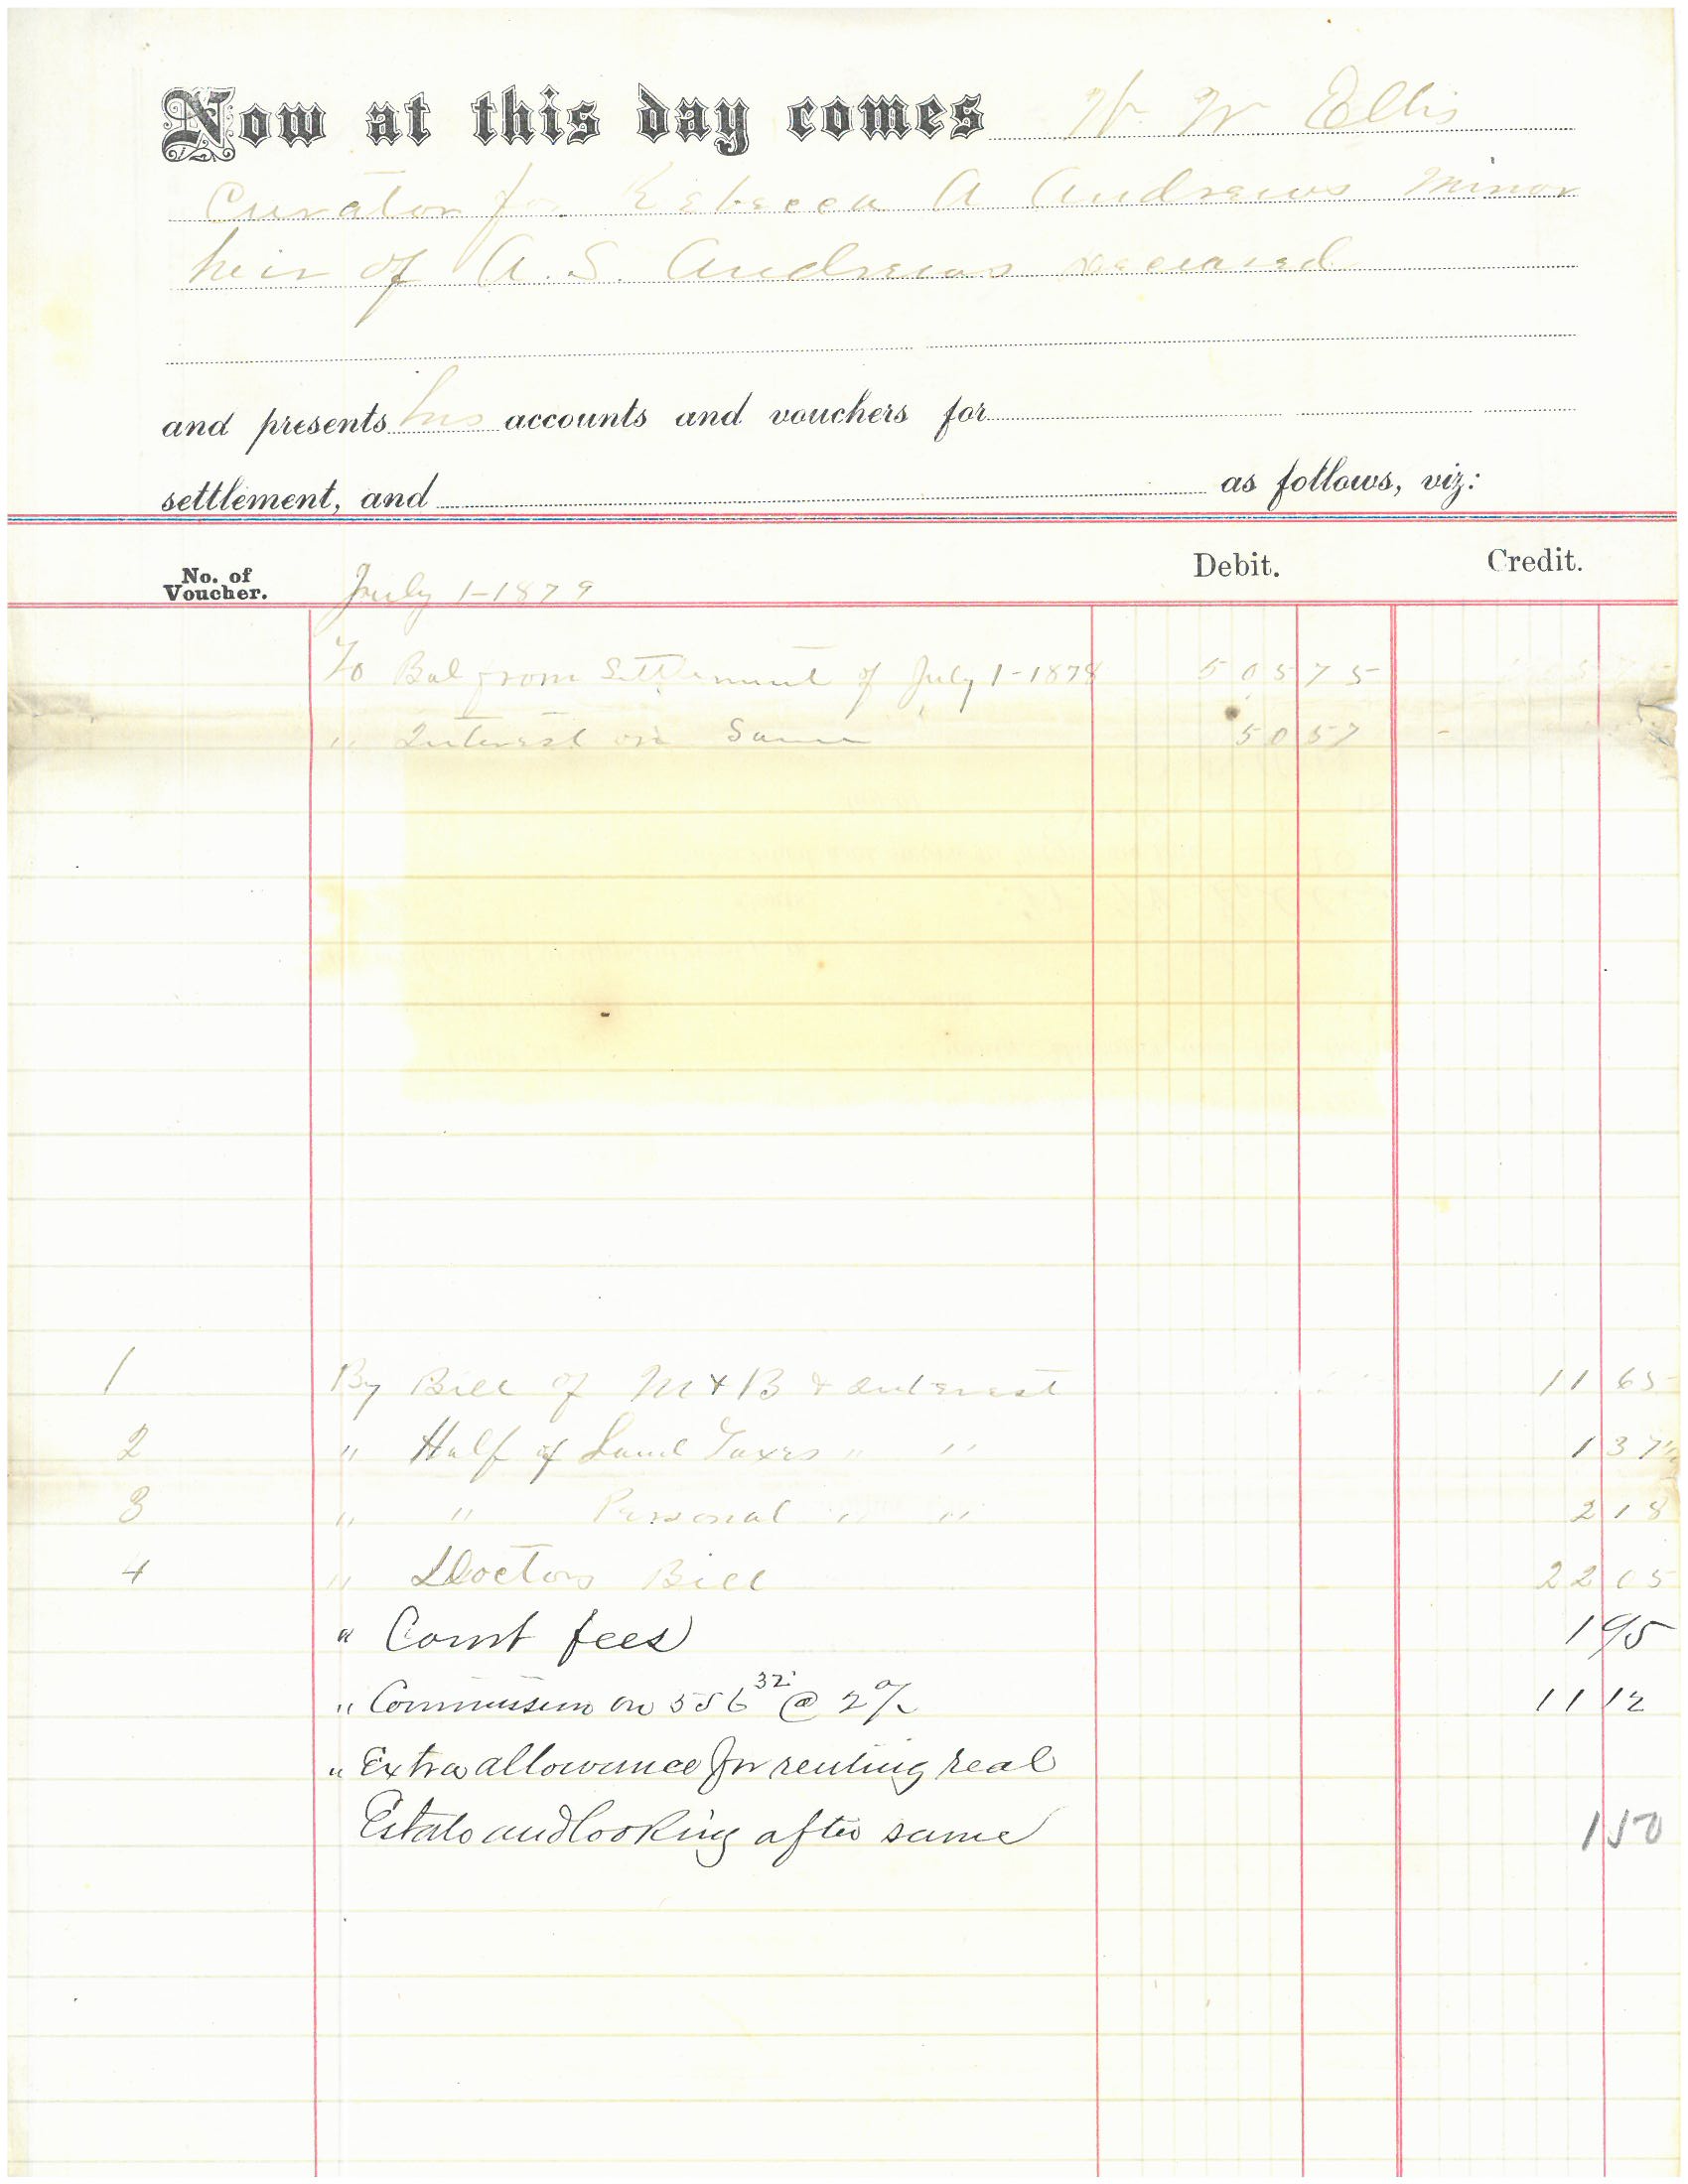 Now at this day comes W. W Ellis
Curator for Rebecca A Andrews Minor
heir of A. S. Andrews deceased
and presents his accounts and vouchers for
settlement, and as follows, viz:
No. of Voucher. July 1-1879 Debit. Credit.
To Bal from Settlement of July 1-1878 505 75
" Interest on Same 50 57
1 By Bill of M & B & Interest 11 65
2 " Half of Land Taxes " " 1 37½
3 " " Personal " " 2 18
4 " Doctors Bill 22 05
" Court fees 1 95
" Commission on 556 32 @ 2% 11 12
" Extra allowance for renting real
Estate and looking after same 1 50